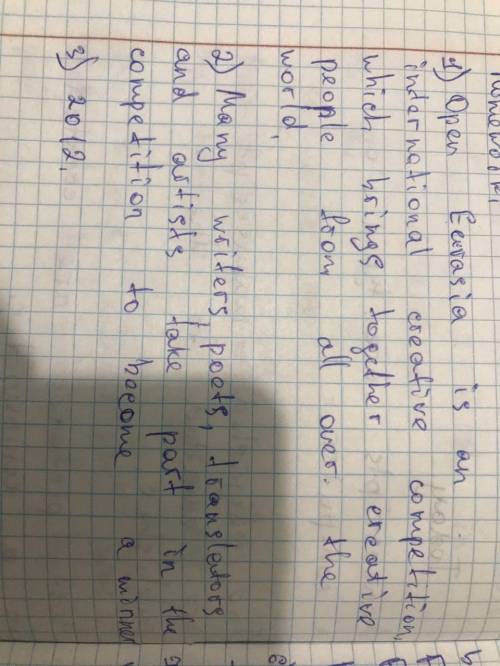 1) Open Eurasia is an
international creative competition,
which brings together creative
people from all over the
world.
2) Many writers, poets, translators
and artists take part in the
competition to become a winner
3) 2012.